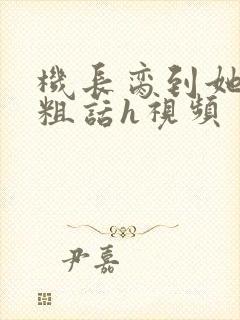 機長齊到她
粗話h視頻
尹嘉